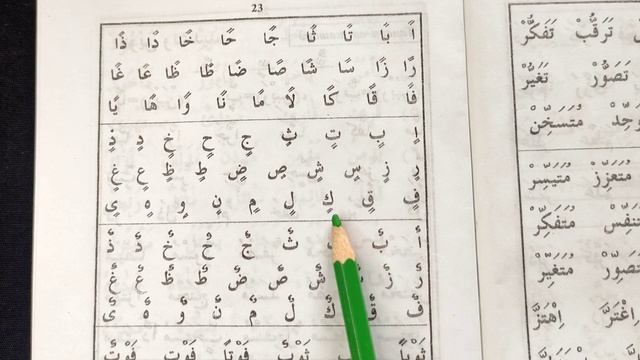 23
اً باً تاً ثاً جاً حاً خاً داً ذاً
راً زاً ساً شاً صاً ضاً طاً ظاً عاً غاً
فاً قاً كاً لاً ماً ناً واً هاً ياً
اٍ بٍ تٍ ثٍ جٍ حٍ خٍ دٍ ذٍ
رٍ زٍ سٍ شٍ صٍ ضٍ طٍ ظٍ عٍ غٍ
فٍ قٍ كٍ لٍ مٍ نٍ وٍ هٍ ىٍ
اٌ بٌ ثٌ جٌ حٌ خٌ دٌ ذٌ
رٌ زٌ شٌ صٌ ضٌ طٌ ظٌ عٌ غٌ
فٌ قٌ كٌ لٌ مٌ نٌ وٌ هٌ ىٌ
ثَوْباً ثَوْبٌ فَوْتاً فَوْتٍ فَوْتٌ
تَرَقُّبْ تَفَكُّرْ
تَصَوُّرْ تَغَيُّرْ
مُتَسَخِّنْ
مُتَعَزِّزْ مُتَيَسِّرْ
مُتَفَكِّرْ
مُتَغَيِّرْ
اِغْتَرَّ اِهْتَزَّ